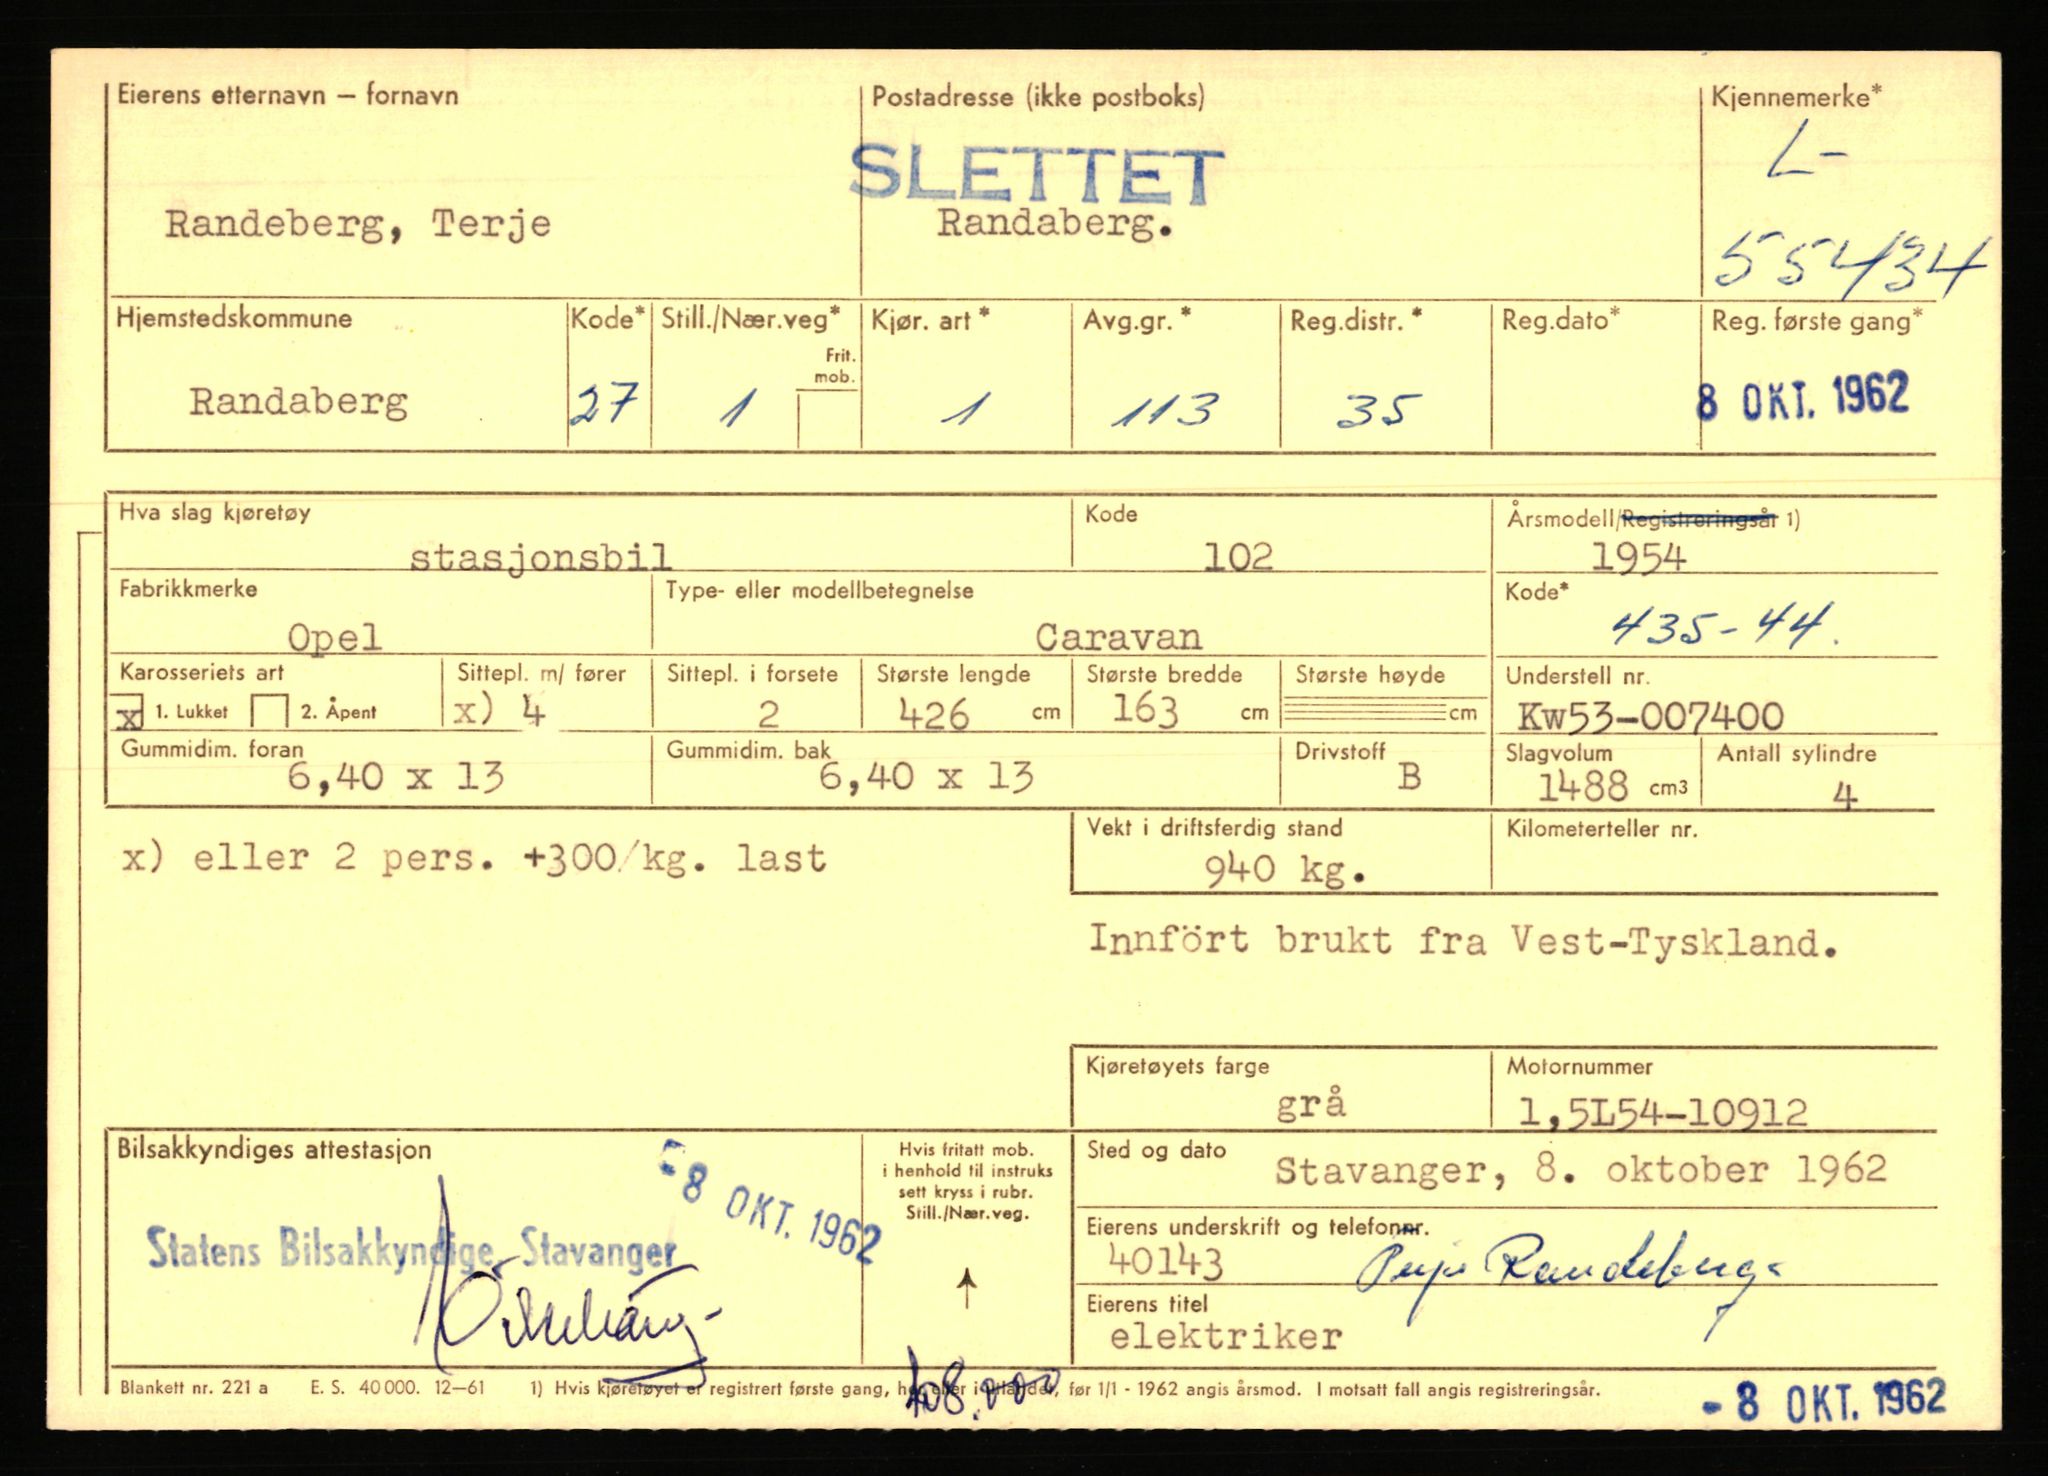 Eierens etternavn – fornavn Postadresse (ikke postboks) Kjennemerke*
L-
SLETTET
Randeberg, Terje Randaberg.
55434
Hjemstedskommune Kode* Still./Nær.veg* Kjør. art* Avg.gr.* Reg.distr.* Reg.dato* Reg. første gang*
Frit. mob.
Randaberg 27 1 1 113 35 8 OKT. 1962
Hva slag kjøretøy Kode Årsmodell/Registreringsår 1)
stasjonsbil 102 1954
Fabrikkmerke Type- eller modellbetegnelse Kode*
Opel Caravan 435-44.
Karosseriets art Sittepl. m/ fører Sittepl. i forsete Største lengde Største bredde Største høyde Understell nr.
x 1. Lukket 2. Åpent x) 4 2 426 cm 163 cm cm Kw53-007400
Gummidim. foran Gummidim. bak Drivstoff Slagvolum Antall sylindre
6,40 x 13 6,40 x 13 B 1488 cm3 4
Vekt i driftsferdig stand Kilometerteller nr.
x) eller 2 pers. +300/kg. last 940 kg.
Innfört brukt fra Vest-Tyskland.
Kjøretøyets farge Motornummer
grå 1,5L54-10912
Bilsakkyndiges attestasjon Hvis fritatt mob. i henhold til instruks sett kryss i rubr. Still./Nær.veg. Sted og dato
-8 OKT. 1962 Stavanger, 8. oktober 1962
Statens Bilsakkyndige, Stavanger
Eierens underskrift og telefonnr.
40143 Terje Randeberg
Eierens titel
elektriker
408.000
Blankett nr. 221 a E. S. 40 000. 12–61 1) Hvis kjøretøyet er registrert første gang, her eller i utlandet, før 1/1 - 1962 angis årsmod. I motsatt fall angis registreringsår.
- 8 OKT. 1962